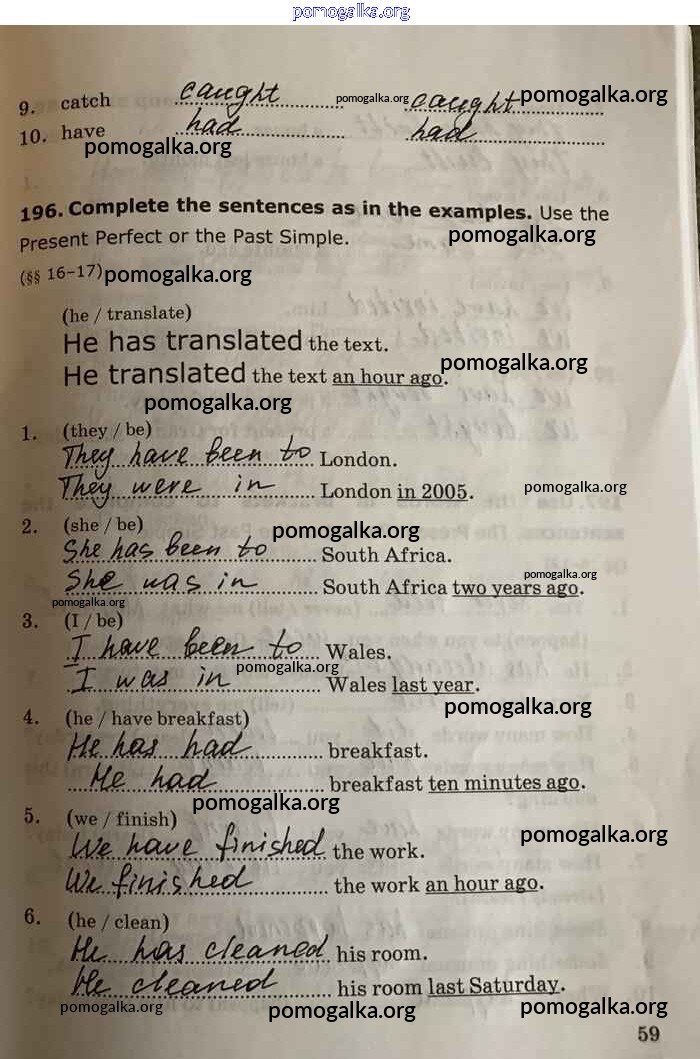 pomogalka.org
9. catch caught pomogalka.org caught pomogalka.org
10. have had had
pomogalka.org
196. Complete the sentences as in the examples. Use the
Present Perfect or the Past Simple. pomogalka.org
(§§ 16–17) pomogalka.org
(he / translate)
He has translated the text.
He translated the text an hour ago. pomogalka.org
pomogalka.org
1. (they / be)
They have been to London.
They were in London in 2005. pomogalka.org
2. (she / be) pomogalka.org
She has been to South Africa.
She was in South Africa two years ago. pomogalka.org
pomogalka.org
3. (I / be)
I have been to Wales.
pomogalka.org
I was in Wales last year.
pomogalka.org
4. (he / have breakfast)
He has had breakfast.
He had breakfast ten minutes ago.
pomogalka.org
5. (we / finish) pomogalka.org
We have finished the work.
We finished the work an hour ago.
6. (he / clean)
He has cleaned his room.
He cleaned his room last Saturday.
pomogalka.org pomogalka.org pomogalka.org
59